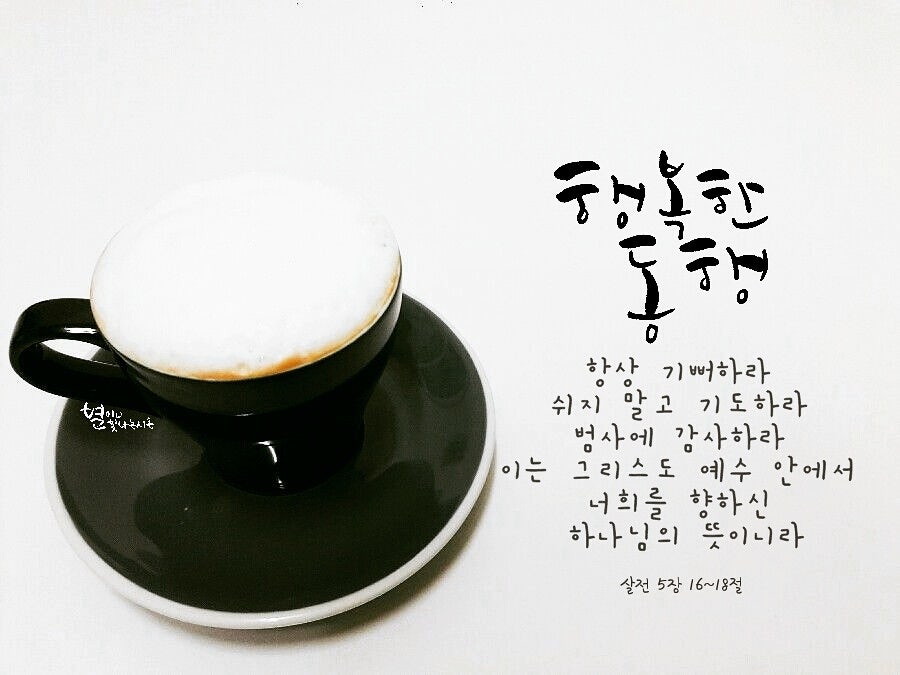 행복한
동행
항상 기뻐하라
쉬지 말고 기도하라
범사에 감사하라
이는 그리스도 예수 안에서
너희를 향하신
하나님의 뜻이니라
살전 5장 16~18절
별이
빛나는시온